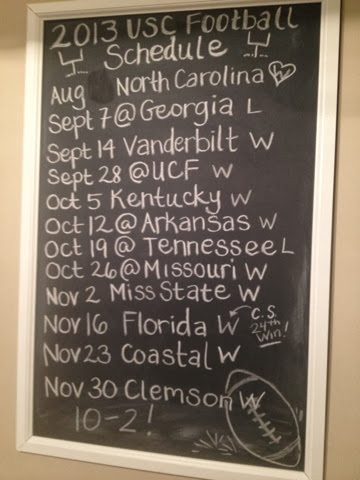 2013 USC Football
Schedule
Aug North Carolina W
Sept 7 @ Georgia L
Sept 14 Vanderbilt W
Sept 28 @ UCF W
Oct 5 Kentucky W
Oct 12 @ Arkansas W
Oct 19 @ Tennessee L
Oct 26 @ Missouri W
Nov 2 Miss State W
Nov 16 Florida W C.S. 24th Win!
Nov 23 Coastal W
Nov 30 Clemson W
10-2!